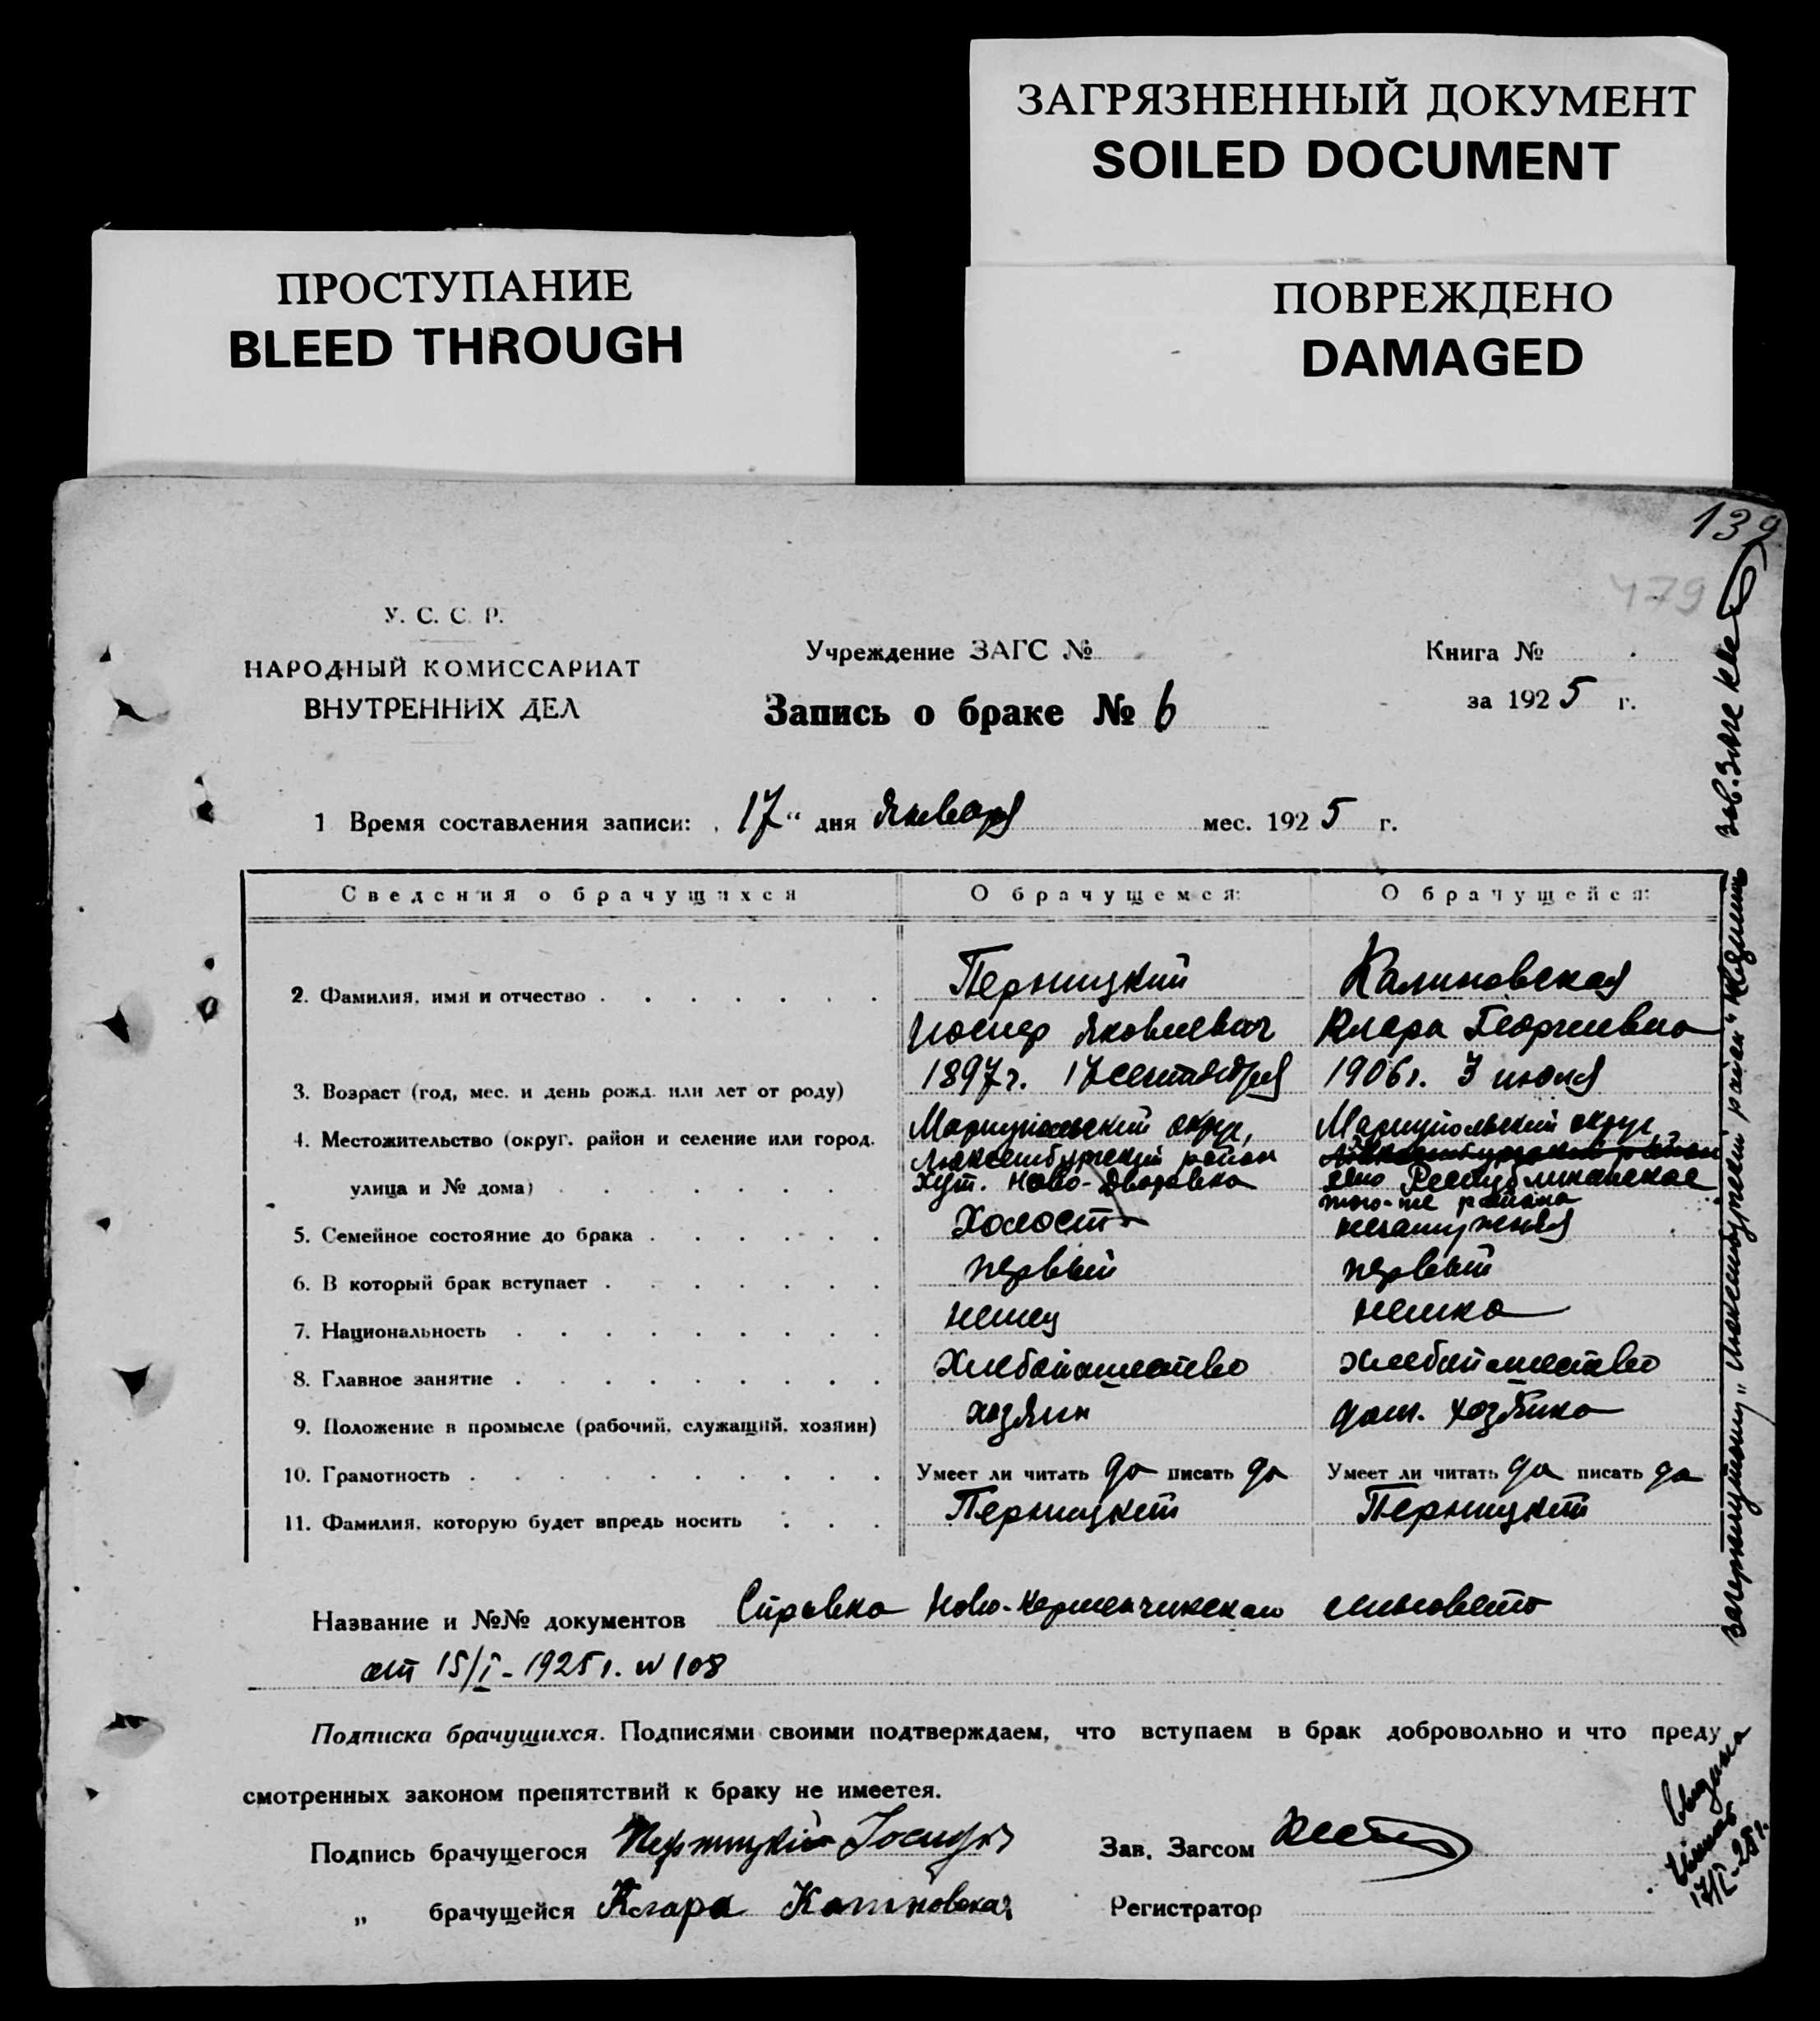 ЗАГРЯЗНЕННЫЙ ДОКУМЕНТ
SOILED DOCUMENT
ПРОСТУПАНИЕ
BLEED THROUGH
ПОВРЕЖДЕНО
DAMAGED
139
479
У. С. С. Р.
НАРОДНЫЙ КОМИССАРИАТ
ВНУТРЕННИХ ДЕЛ
Учреждение ЗАГС №
Книга №
Запись о браке № 6
за 1925 г.
1 Время составления записи: 17" дня Января мес. 1925 г.
Сведения о брачущихся О брачущемся: О брачущейся:
2. Фамилия, имя и отчество Перницкий Калиновская
Иосиф Яковлевич Клара Георгиевна
3. Возраст (год, мес. и день рожд. или лет от роду) 1897г. 17 сентября 1906г. 3 июля
4. Местожительство (округ. район и селение или город. Мариупольский округ, Мариупольский округ
Люксембургский район Люксембургский район
улица и № дома) Хут. Ново-Дворовка село Республиканское
того-же района
5. Семейное состояние до брака Холост незамужняя
6. В который брак вступает первый первый
7. Национальность немец немка
8. Главное занятие Хлебопашество хлебопашество
9. Положение в промысле (рабочий, служащий, хозяин) хозяин дом. хозяйка
10. Грамотность Умеет ли читать да писать да Умеет ли читать да писать да
11. Фамилия, которую будет впредь носить Перницкий Перницкий
Название и №№ документов Справка Ново-Керменчикского сельсовета
от 15/I-1925г. № 108
Подписка брачущихся. Подписями своими подтверждаем, что вступаем в брак добровольно и что преду
смотренных законом препятствий к браку не имеется.
Подпись брачущегося Перницкий Иосиф Зав. Загсом
" брачущейся Клара Калиновская Регистратор
зачеркнутому "Люксембургский район" верить зав. Загс
Выдана
17/I-25г.